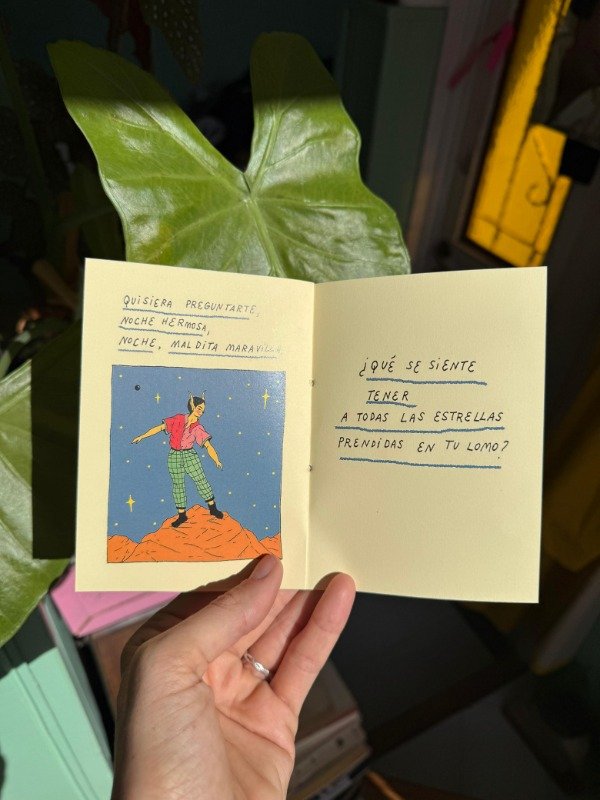 QUISIERA PREGUNTARTE,
NOCHE HERMOSA,
NOCHE, MALDITA MARAVILLA,
¿QUÉ SE SIENTE
TENER
A TODAS LAS ESTRELLAS
PRENDIDAS EN TU LOMO?